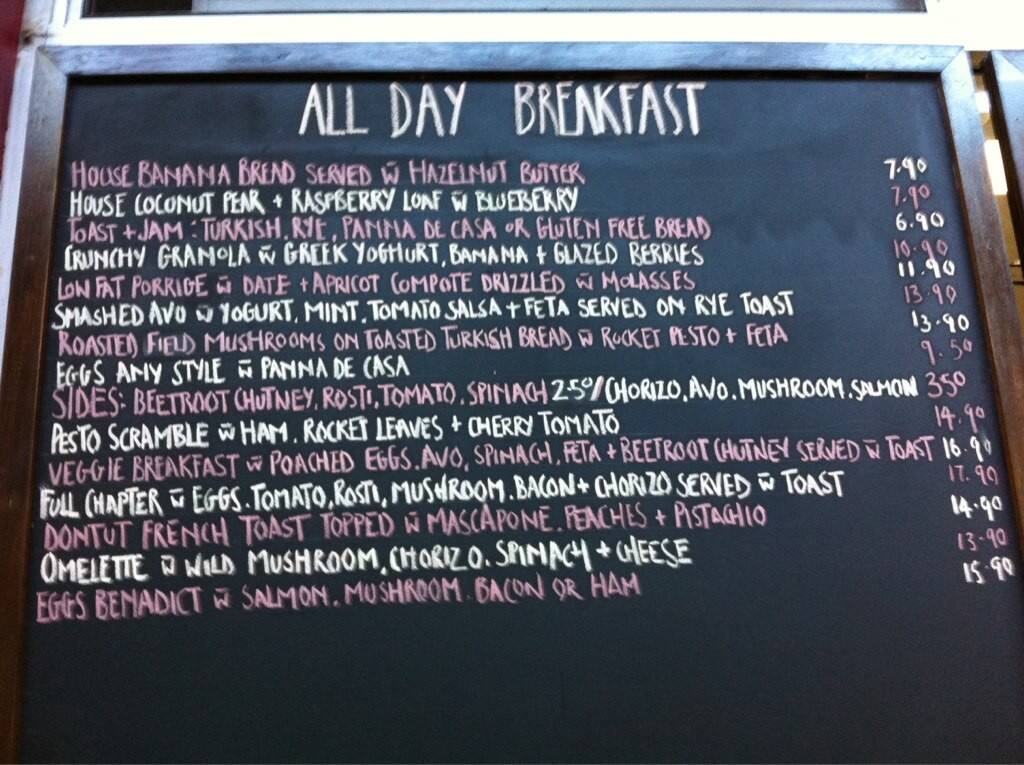 ALL DAY BREAKFAST
HOUSE BANANA BREAD SERVED W̄ HAZELNUT BUTTER 7.90
HOUSE COCONUT PEAR + RASPBERRY LOAF W̄ BLUEBERRY 7.90
TOAST + JAM : TURKISH. RYE, PANNA DE CASA OR GLUTEN FREE BREAD 6.90
CRUNCHY GRANOLA W̄ GREEK YOGHURT, BANANA + GLAZED BERRIES 10.90
LOW FAT PORRIGE W̄ DATE + APRICOT COMPOTE DRIZZLED W̄ MOLASSES 11.90
SMASHED AVO W̄ YOGURT, MINT, TOMATO SALSA + FETA SERVED ON RYE TOAST 13.90
ROASTED FIELD MUSHROOMS ON TOASTED TURKISH BREAD W̄ ROCKET PESTO + FETA 13.90
EGGS ANY STYLE W̄ PANNA DE CASA 9.50
SIDES: BEETROOT CHUTNEY, ROSTI, TOMATO, SPINACH 2.50/CHORIZO, AVO. MUSHROOM. SALMON 350
PESTO SCRAMBLE W̄ HAM. ROCKET LEAVES + CHERRY TOMATO 14.90
VEGGIE BREAKFAST W̄ POACHED EGGS. AVO, SPINACH, FETA + BEETROOT CHUTNEY SERVED W̄ TOAST 16.90
FULL CHAPTER W̄ EGGS. TOMATO, ROSTI, MUSHROOM. BACON + CHORIZO SERVED W̄ TOAST 17.90
DONTUT FRENCH TOAST TOPPED W̄ MASCAPONE. PEACHES + PISTACHIO 14.90
OMELETTE W̄ WILD MUSHROOM, CHORIZO. SPINACH + CHEESE 13.90
EGGS BENADICT W̄ SALMON. MUSHROOM. BACON OR HAM 15.90